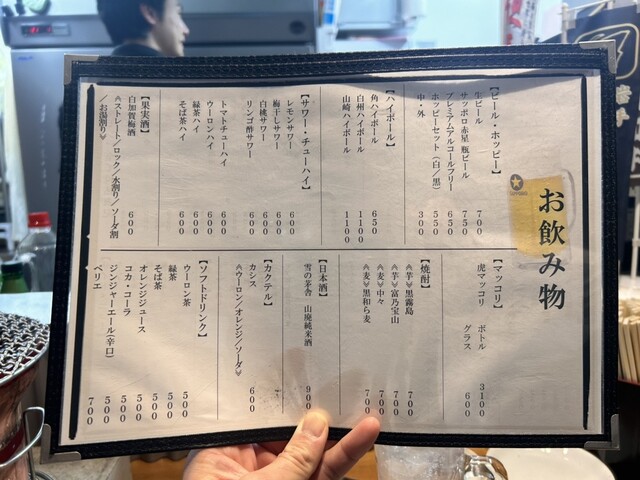 お飲み物
【ビール・ホッピー】
生ビール 700
サッポロ赤星 瓶ビール 750
プレミアムアルコールフリー 650
ホッピーセット（白／黒） 550
中・外 300
【ハイボール】
角ハイボール 650
白州ハイボール 1100
山崎ハイボール 1100
【サワー・チューハイ】
レモンサワー 600
梅干しサワー 600
白桃サワー 600
リンゴ酢サワー 600
トマトチューハイ 600
ウーロンハイ 600
緑茶ハイ 600
そば茶ハイ 600
【果実酒】
白加賀梅酒 600
《ストレート／ロック／水割り／ソーダ割
／お湯割り》
【マッコリ】
虎マッコリ ボトル 3100
グラス 600
【焼酎】
《芋》黒霧島 700
《芋》富乃宝山 700
《麦》中々 700
《麦》黒和ら麦 700
【日本酒】
雪の茅舎 山廃純米酒 900
【カクテル】
カシス 600
《ウーロン／オレンジ／ソーダ》
【ソフトドリンク】
ウーロン茶 500
緑茶 500
そば茶 500
オレンジジュース 500
コカ・コーラ 500
ジンジャーエール(辛口) 500
ペリエ 700